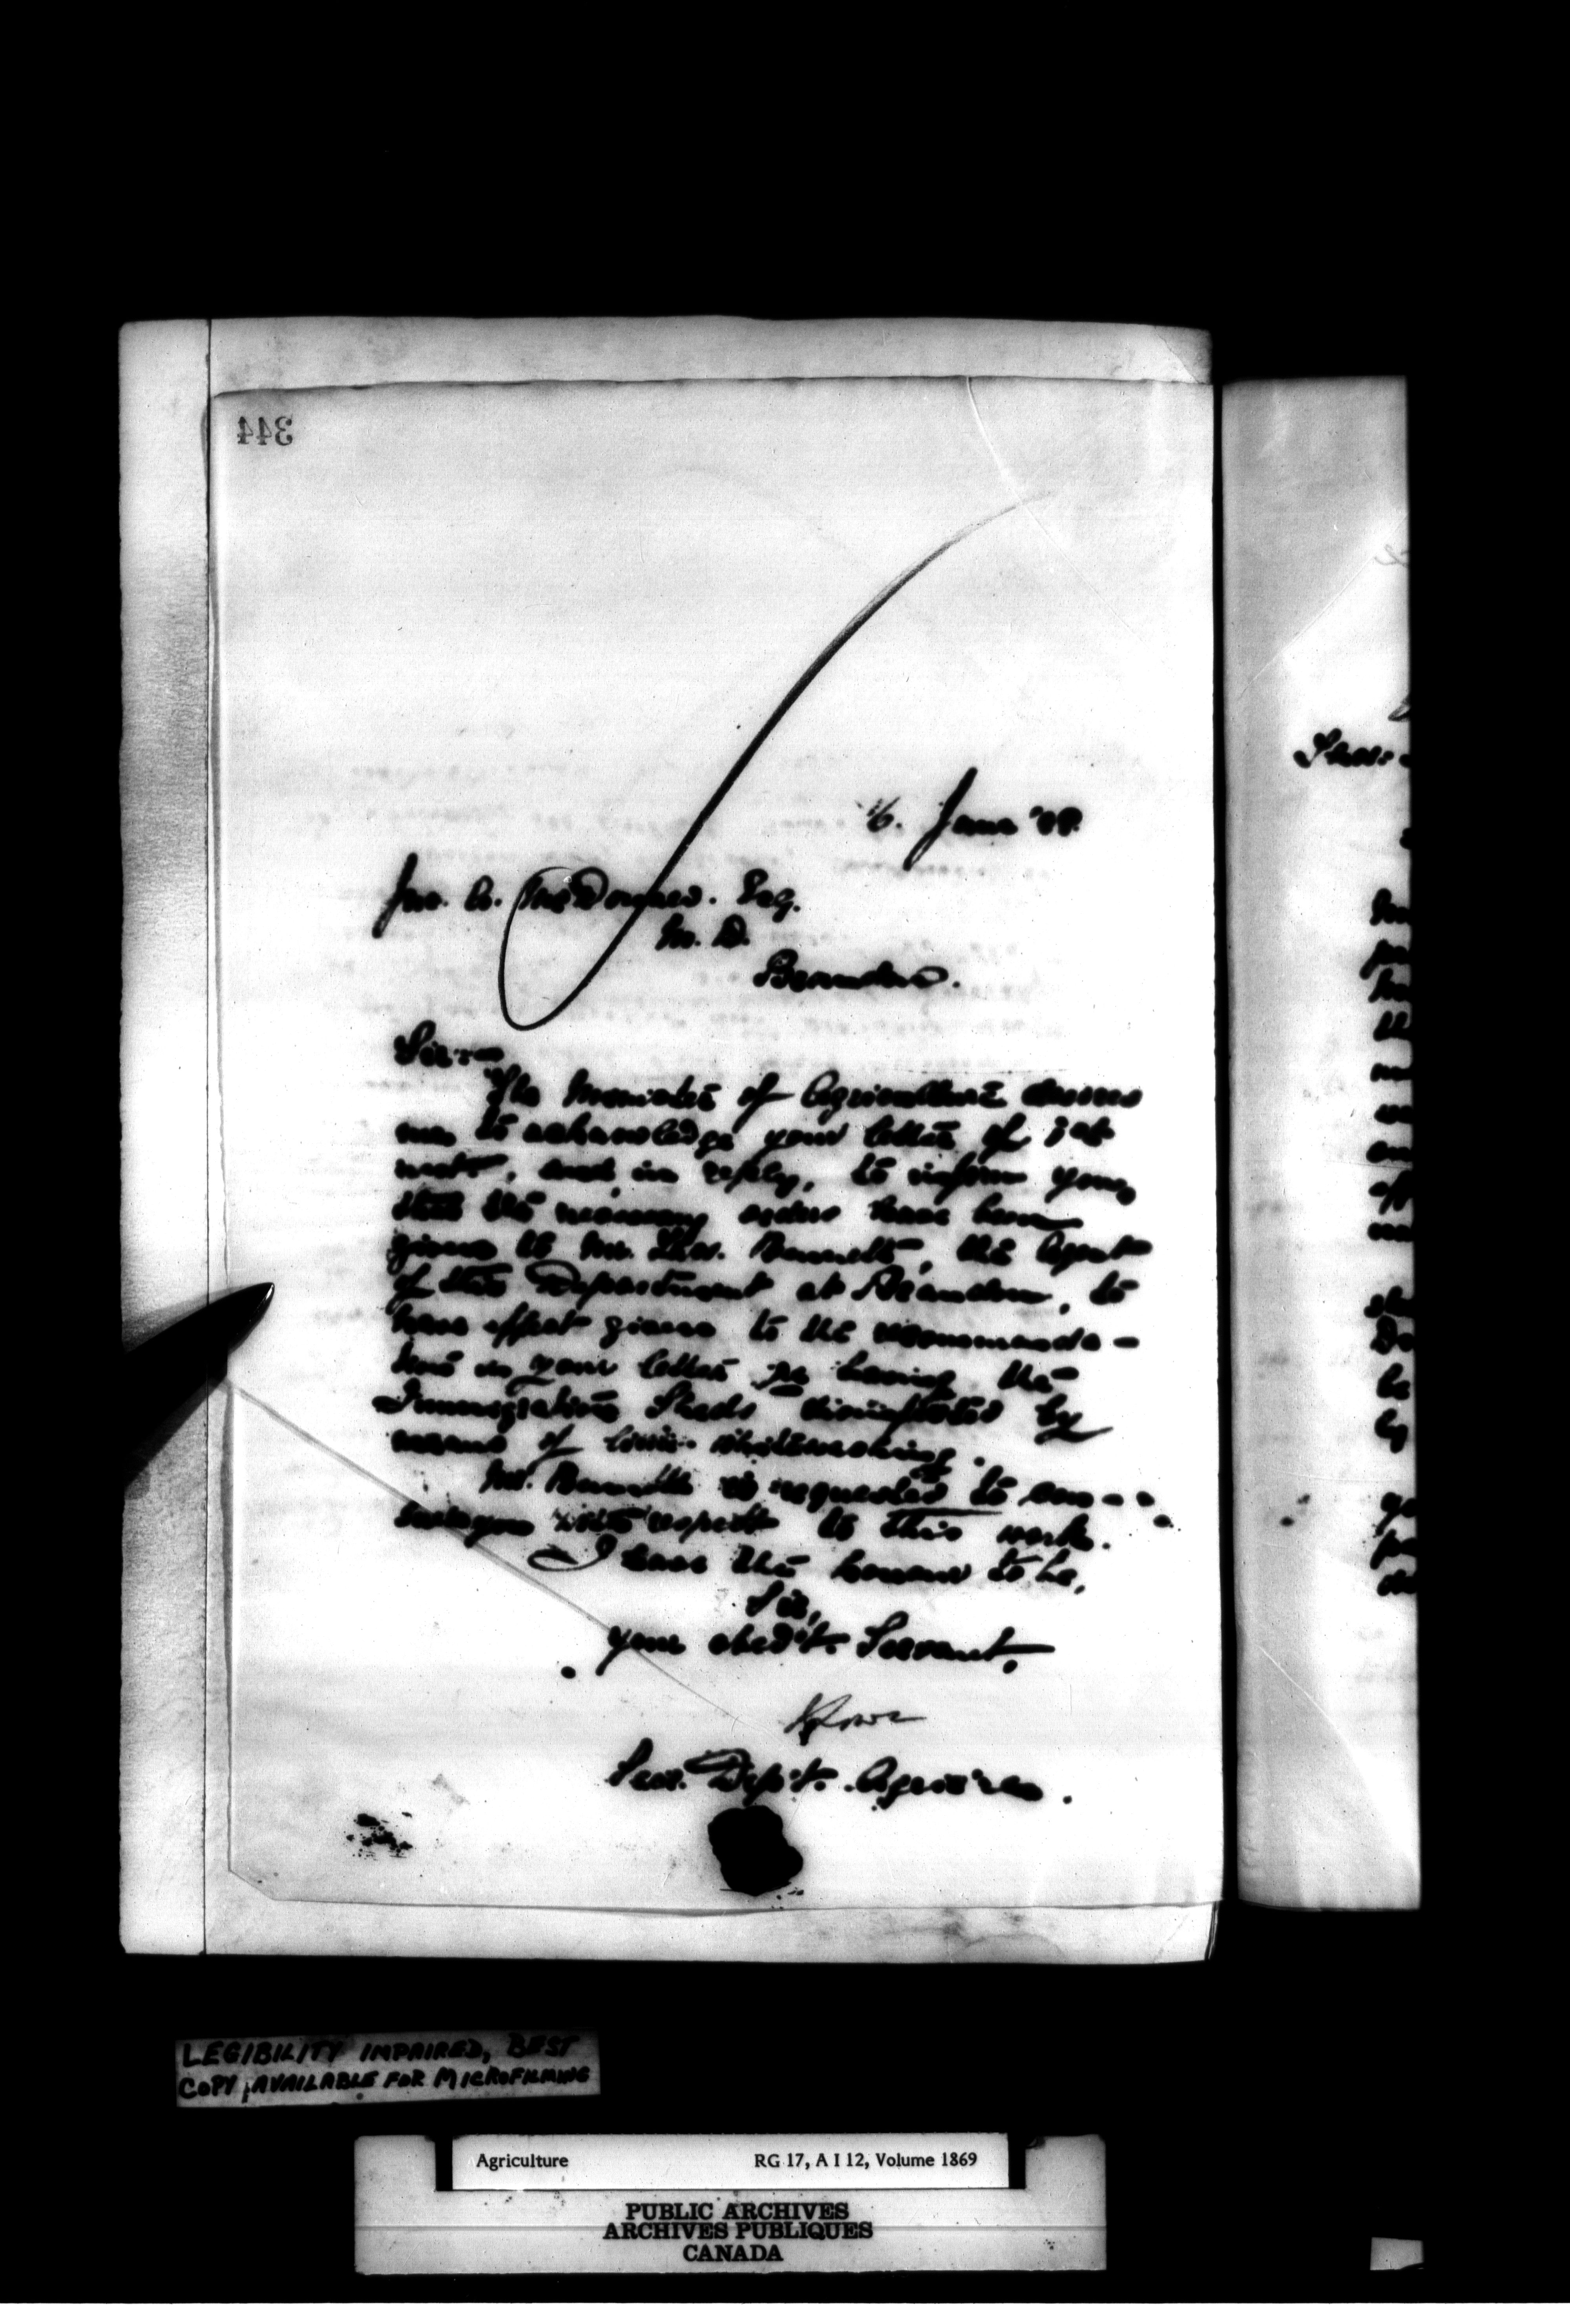 344
6. June '88.
Jno. A. McDonald. Esq.
M. D.
Brandon.
Sir:—
The Minister of Agriculture desires
me to acknowledge your letter of 1st
inst., and, in reply, to inform you,
that the necessary orders have been
given to Mr. Thos. Bennett, the Agent
of this Department at Brandon, to
have effect given to the recommenda-
tions in your letter re having the
Immigration Sheds disinfected by
means of lime whitewashing.
Mr. Bennett is requested to con-
sult you with respect to this work.
I have the honour to be,
Sir,
your obed't. Servant,
HLowe
Secr. Dep't. Agric're.
LEGIBILITY IMPAIRED, BEST
COPY AVAILABLE FOR MICROFILMING
Agriculture RG 17, A I 12, Volume 1869
PUBLIC ARCHIVES
ARCHIVES PUBLIQUES
CANADA